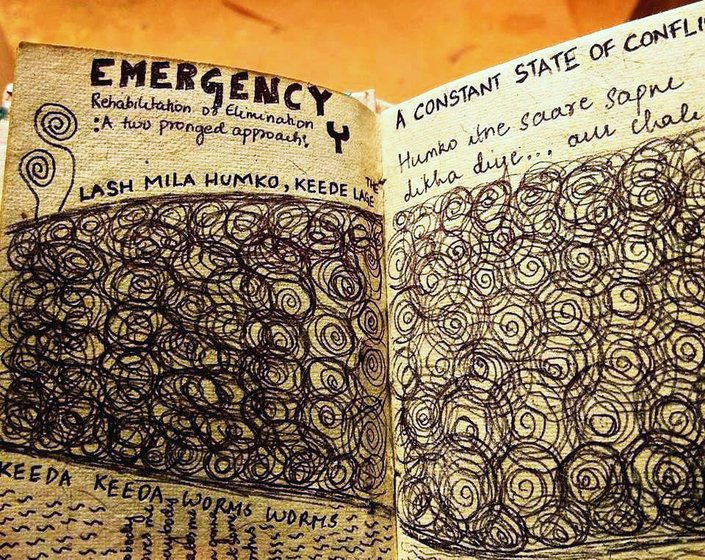 EMERGENCY
Rehabilitation or Elimination
: A two pronged approach
LASH MILA HUMKO, KEEDE LAGE THE
KEEDA KEEDA WORMS WORMS
A CONSTANT STATE OF CONFLI
Humko itne saare sapne
dikha diye... aur chale